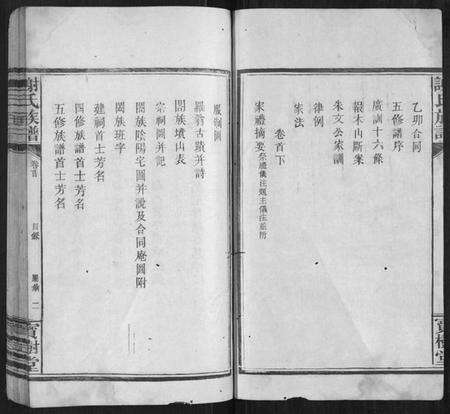 謝氏族譜
寶樹堂
乙卯合同
五修譜序
廣訓十六條
報本山斷案
朱文公家訓
律例
家法
卷首下
家禮摘要祭禮儀注題主儀注
服制圖
羅翁古蹟并詩
閤族墳山表
宗祠圖并記
閤族陰陽宅圖并說及合同庵圖附
閤族班字
建祠首士芳名
四修族譜首士芳名
五修族譜首士芳名
謝氏族譜
卷首
目錄
二
寶樹堂